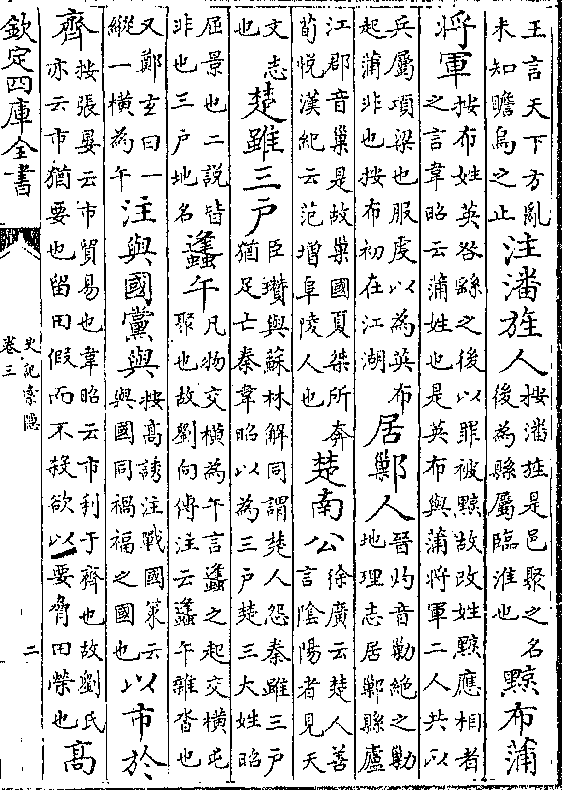 王言天下方亂
未知瞻烏之止
注潘旌人
按潘旌是邑聚之名
後為縣屬臨淮也
黥布蒲
將軍
按布姓英咎繇之後以罪被黥故改姓黥應相者
之言韋昭云蒲姓也是英布與蒲將軍二人共以
兵屬項梁也服虔以為英布
起蒲非也按布初在江湖
居鄛人
晉灼音勦絶之勦
地理志居鄛縣廬
江郡音巢是故巢國夏桀所奔
荀悅漢紀云范增阜陵人也
楚南公
徐廣云楚人善
言陰陽者見天
文志
也
楚雖三户
臣瓚與蘇林解同謂楚人怨秦雖三户
猶足亡秦韋昭以為三户楚三大姓昭
屈景也二說皆
非也三户地名
蠭午
凡物交橫為午言蠭之起交橫屯
聚也故劉向傳注云蠭午雜沓也
又鄭玄曰一
縱一橫為午
注與國黨與
按高誘注戰國策云
與國同禍福之國也
以市於
齊
按張晏云市貿易也韋昭云市利于齊也故劉氏
亦云市猶要也留田假而不殺欲以要脅田榮也
高
欽定四庫全書
史記索隱
卷三
二